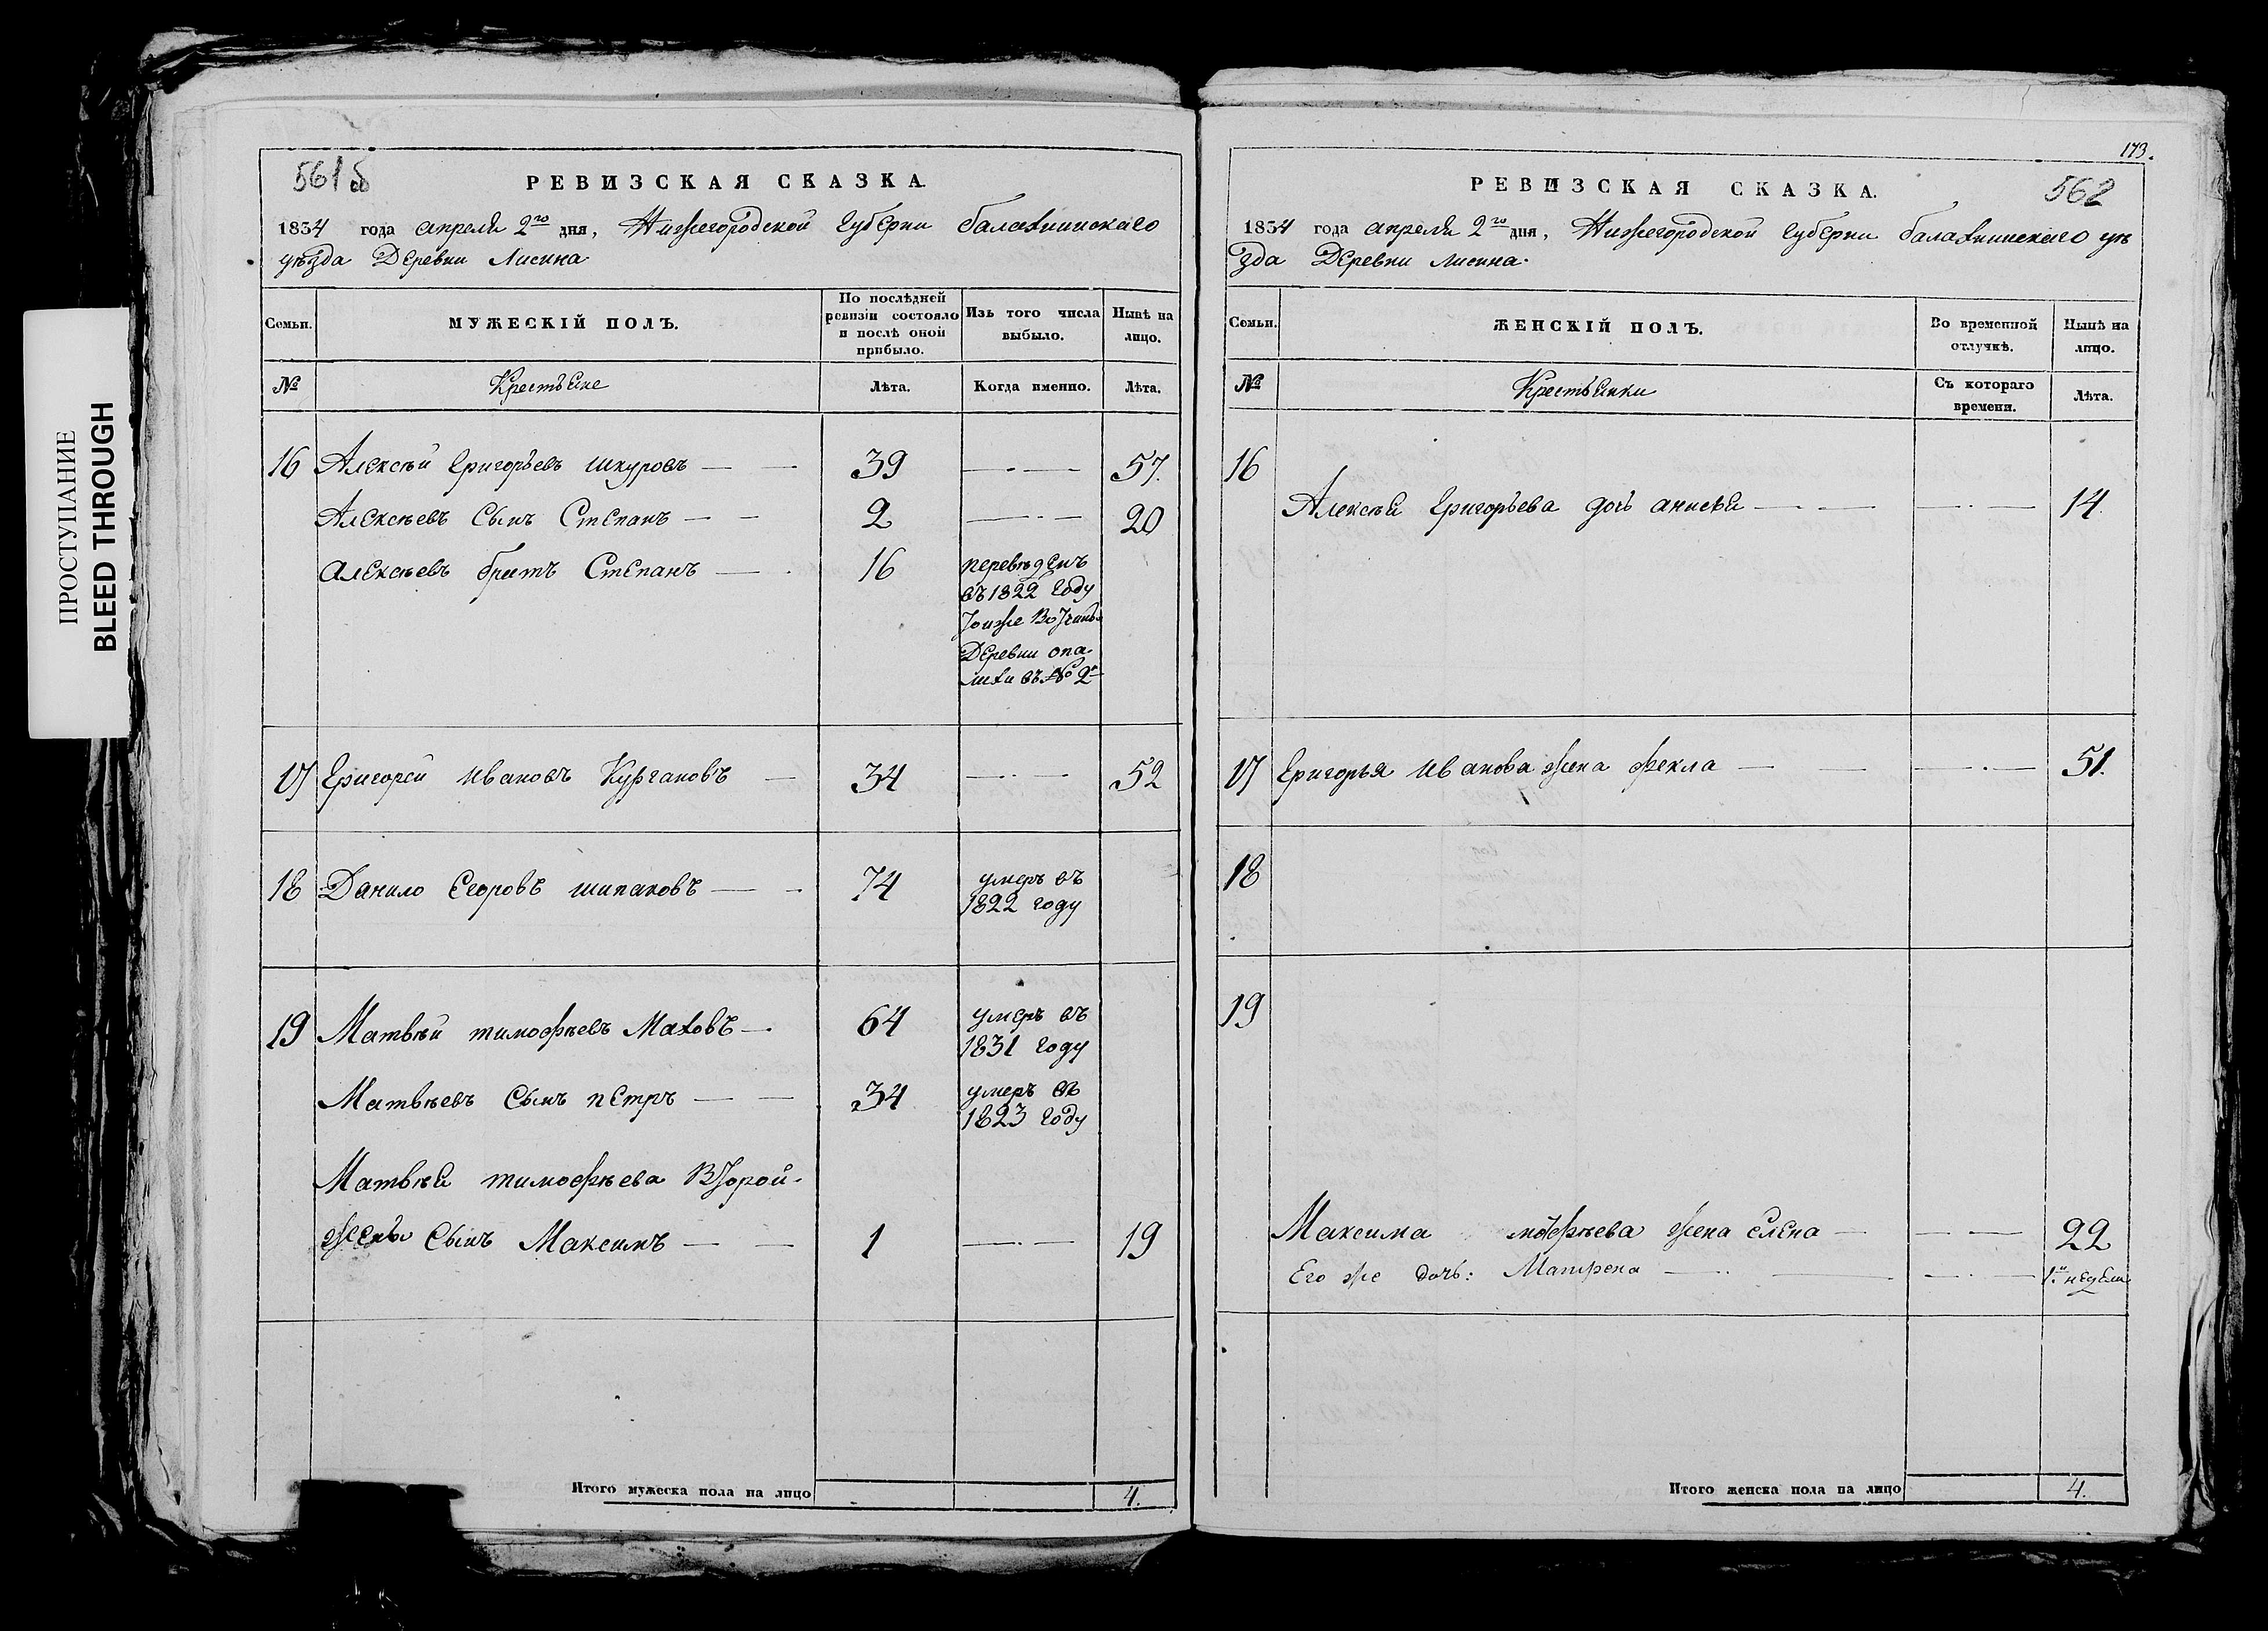 ПРОСТУПАНИЕ
BLEED THROUGH
561об
РЕВИЗСКАЯ СКАЗКА.
1834 года апреля 2го дня, Нижегородской губерни балахнинскаго
уѣзда Деревни Лисина
Семьи. МУЖЕСКІЙ ПОЛЪ. По послѣдней ревизіи состояло и послѣ оной прибыло. Изъ того числа выбыло. Нынѣ на лицо.
№ Крестьяне Лѣта. Когда именно. Лѣта.
16 Алексѣй григорьевъ шкуровъ — — 39 —·— 57.
Алексѣевъ сынъ Степанъ — — 2 —·— 20
Алексѣевъ братъ Степанъ — · 16 переведенъ
въ 1822 году
тойже вотчины
Деревни опа-
лихи въ № 2й
17 Григорей Ивановъ Кургановъ — 34 —··— 52
18 Данило Егоровъ шипаковъ — - 74 умеръ въ
1822 году
19 Матвѣй тимофѣевъ Маховъ —· 64 умеръ въ
1831 году
Матвѣевъ сынъ петръ — — 34 умеръ въ
1823 году
Матвѣя тимофѣева второй-
жены сынъ Максимъ — — 1 —·— 19
Итого мужеска пола на лицо 4.
173.
РЕВИЗСКАЯ СКАЗКА. 562
1834 года апреля 2го дня, Нижегородской губерни балахнинскаго уѣ
зда Деревни лисина.
Семьи. ЖЕНСКІЙ ПОЛЪ. Во временной отлучкѣ. Нынѣ на лицо.
№ Крестьянки Съ котораго времени. Лѣта.
16
Алексѣя григорьева дочь анисья —·— —··— 14
17 Григорья Иванова жена фекла — — —·— 51.
18
19
Максима мофѣева жена елена — —·— 22
Его же дочь: Матрена —·· — —·— 1й недели
Итого женска пола на лицо 4.